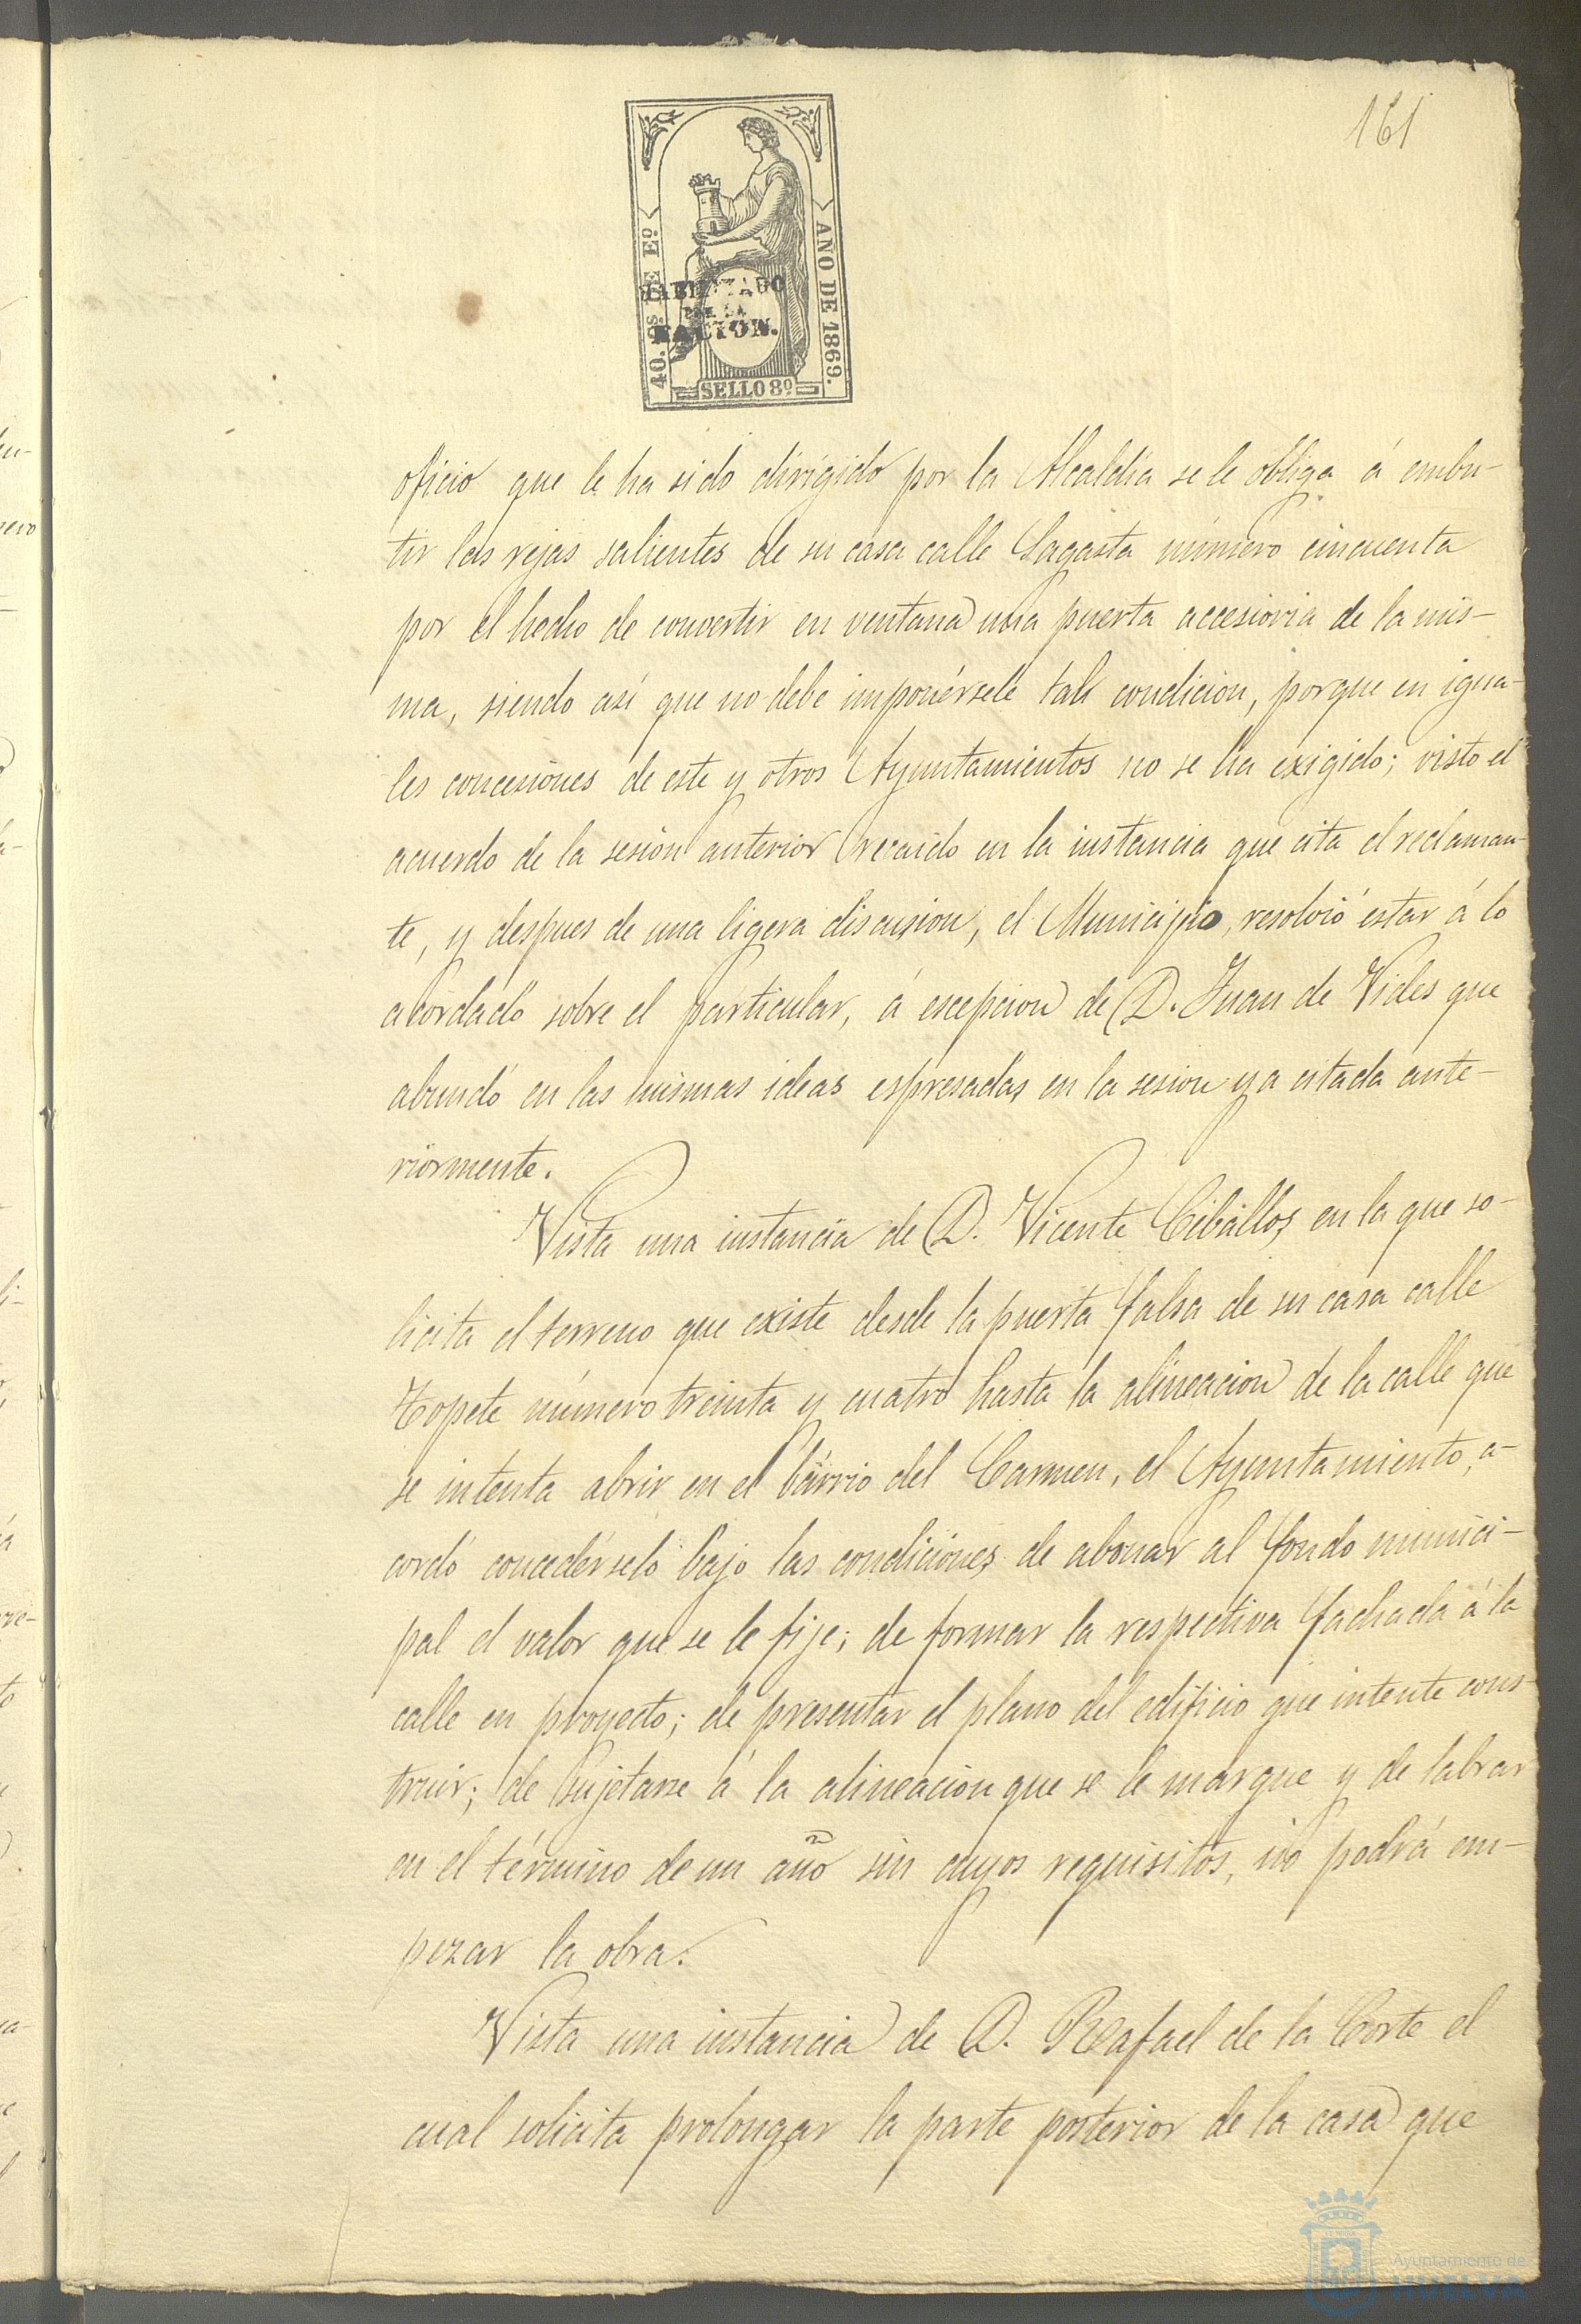 161
40. Cs. DE Eº
AÑO DE 1869.
HABILITADO
POR LA
NACION.
SELLO 8º
oficio que le ha sido dirigido por la Alcaldia se le obliga á embu-
tir las rejas salientes de su casa calle Sagasta número cincuenta
por el hecho de convertir en ventana una puerta accesioria de la mis-
ma, siendo así que no debe imponérsele tal condicion, porque en igua-
les concesiones de este y otros Ayuntamientos no se ha exigido; visto el
acuerdo de la sesion anterior recaido en la instancia que cita el reclaman-
te, y despues de una ligera discusion, el Municipio, resolvió estar á lo
acordado sobre el particular, á escepcion de D. Juan de Vides que
abundó en las mismas ideas espresadas en la sesion ya citada ante-
riormente.
Vista una instancia de D. Vicente Ceballos en la que so-
licita el terreno que existe desde la puerta falsa de su casa calle
Topete número treinta y cuatro hasta la alineacion de la calle que
se intenta abrir en el bárrio del Carmen, el Ayuntamiento, a-
cordó concedérselo bajo las condiciones de abonar al fondo munici-
pal el valor que se le fije; de formar la respectiva fachada á la
calle en proyecto; de presentar el plano del edificio que intente cons-
truir; de sujetarse á la alineacion que se le marque y de labrar
en el término de un año sin cuyos requisitos, no podrá em-
pezar la obra.
Vista una instancia de D. Rafael de la Corte el
cual solicita prolongar la parte posterior de la casa que
Ayuntamiento de
HUELVA